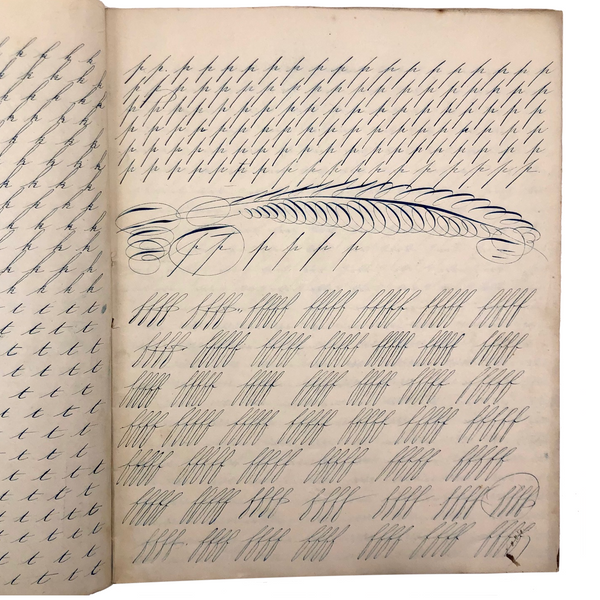 k k k k k
k k k k k
k k k k k
k k k k k
k k k k k
k k k k k
k k k k k
k k k k k
k k k k k
k k k k k
k k k k k
k k k k k
t t t t t
t t t t t
t t t t t
t t t t t
t t t t t
t t t t t
t t t t t
t t t t t
t t t t t
t t t t t
t t t t t
t t t t t
t t t t t
t t t t t
p p p p p p p p p p p p p p p p p p p
p p p p p p p p p p p p p p p p p p p
p p p p p p p p p p p p p p p p p p p
p p p p p p p p p p p p p p p p p p p
p p p p p p p p p p p p p p p p p p p
p p p p p p p p p p p p p p p p p p p
p p p p p p p
ffff ffff fffff fffff fffff fffff fffff
ffff fffff fffff fffff fffff fffff fffff
fffff ffff ffff ffff ffff ffff fffff
ffff ffff fffff fffff fffff fffff fffff
fffff fffff fffff fffff fffff fffff
fffff fffff ffff ffff ffff ffff ffff
ffff ffff ffff ffff ffff ffff ffff